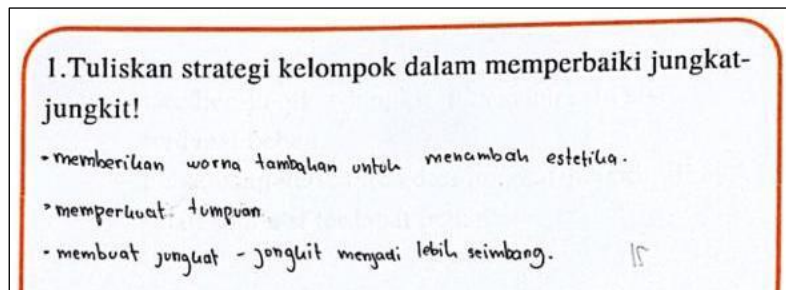 1.Tuliskan strategi kelompok dalam memperbaiki jungkat-
jungkit!
- memberikan warna tambahan untuk menambah estetika.
- memperkuat tumpuan
- membuat jungkat - jongkit menjadi lebih seimbang.